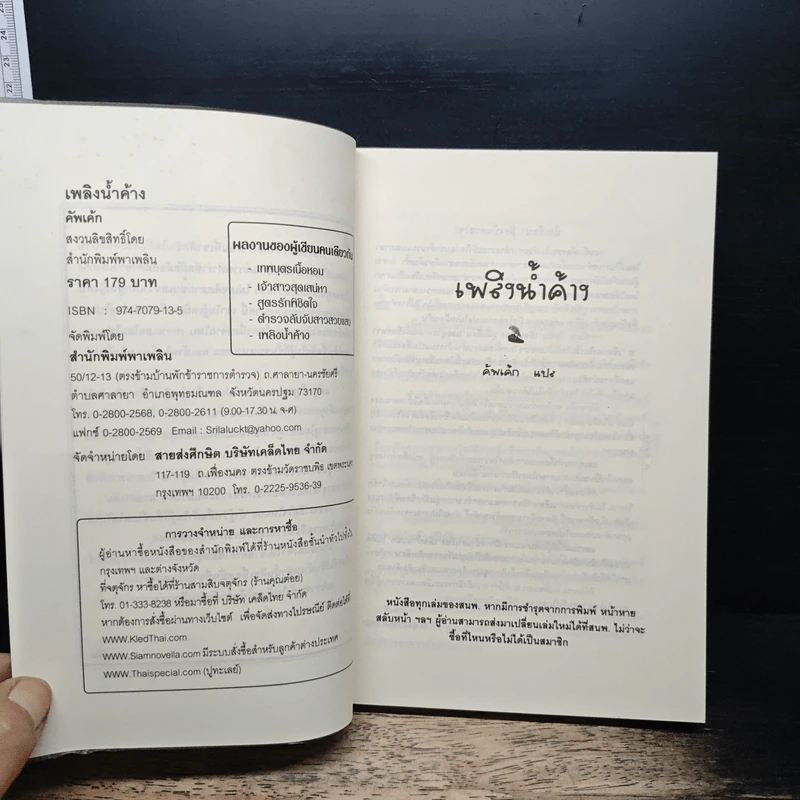 เพลิงน้ำค้าง
คัพเค้ก
สงวนลิขสิทธิ์โดย
สำนักพิมพ์พาเพลิน
ราคา 179 บาท
ISBN : 974-7079-13-5
จัดพิมพ์โดย
สำนักพิมพ์พาเพลิน
50/12-13 (ตรงข้ามบ้านพักข้าราชการตำรวจ) ถ.ศาลายา-นครชัยศรี
ตำบลศาลายา อำเภอพุทธมณฑล จังหวัดนครปฐม 73170
โทร. 0-2800-2568, 0-2800-2611 (9.00-17.30 น. จ-ศ)
แฟกซ์ 0-2800-2569 Email : Srilaluckt@yahoo.com
จัดจำหน่ายโดย สายส่งศึกษิต บริษัทเคล็ดไทย จำกัด
117-119 ถ.เฟื่องนคร ตรงข้ามวัดราชบพิธ เขตพระนคร
กรุงเทพฯ 10200 โทร. 0-2225-9536-39
ผลงานของผู้เขียนคนเดียวกัน
- เทพบุตรเนื้อหอม
- เจ้าสาวสุดเสน่หา
- สูตรรักพิชิตใจ
- ตำรวจลับจับสาวสวยแสบ
- เพลิงน้ำค้าง
การวางจำหน่าย และการหาซื้อ
ผู้อ่านหาซื้อหนังสือของสำนักพิมพ์ได้ที่ร้านหนังสือชั้นนำทั่วไปทั้งใน
กรุงเทพฯ และต่างจังหวัด
ที่จตุจักร หาซื้อได้ที่ร้านสามสิบจตุจักร (ร้านคุณต๋อย)
โทร. 01-333-8238 หรือมาซื้อที่ บริษัท เคล็ดไทย จำกัด
หากต้องการสั่งซื้อผ่านทางเว็บไซต์ เพื่อจัดส่งทางไปรษณีย์ ติดต่อได้ที่
www.KledThai.com
www.Siamnovella.com มีระบบสั่งซื้อสำหรับลูกค้าต่างประเทศ
www.Thaispecial.com (ปูทะเลย์)
เพลิงน้ำค้าง
คัพเค้ก แปะ
หนังสือทุกเล่มของสนพ. หากมีการชำรุดจากการพิมพ์ หน้าหาย
สลับหน้า ฯลฯ ผู้อ่านสามารถส่งมาเปลี่ยนเล่มใหม่ได้ที่สนพ. ไม่ว่าจะ
ซื้อที่ไหนหรือไม่ได้เป็นสมาชิก
25
24
23
22